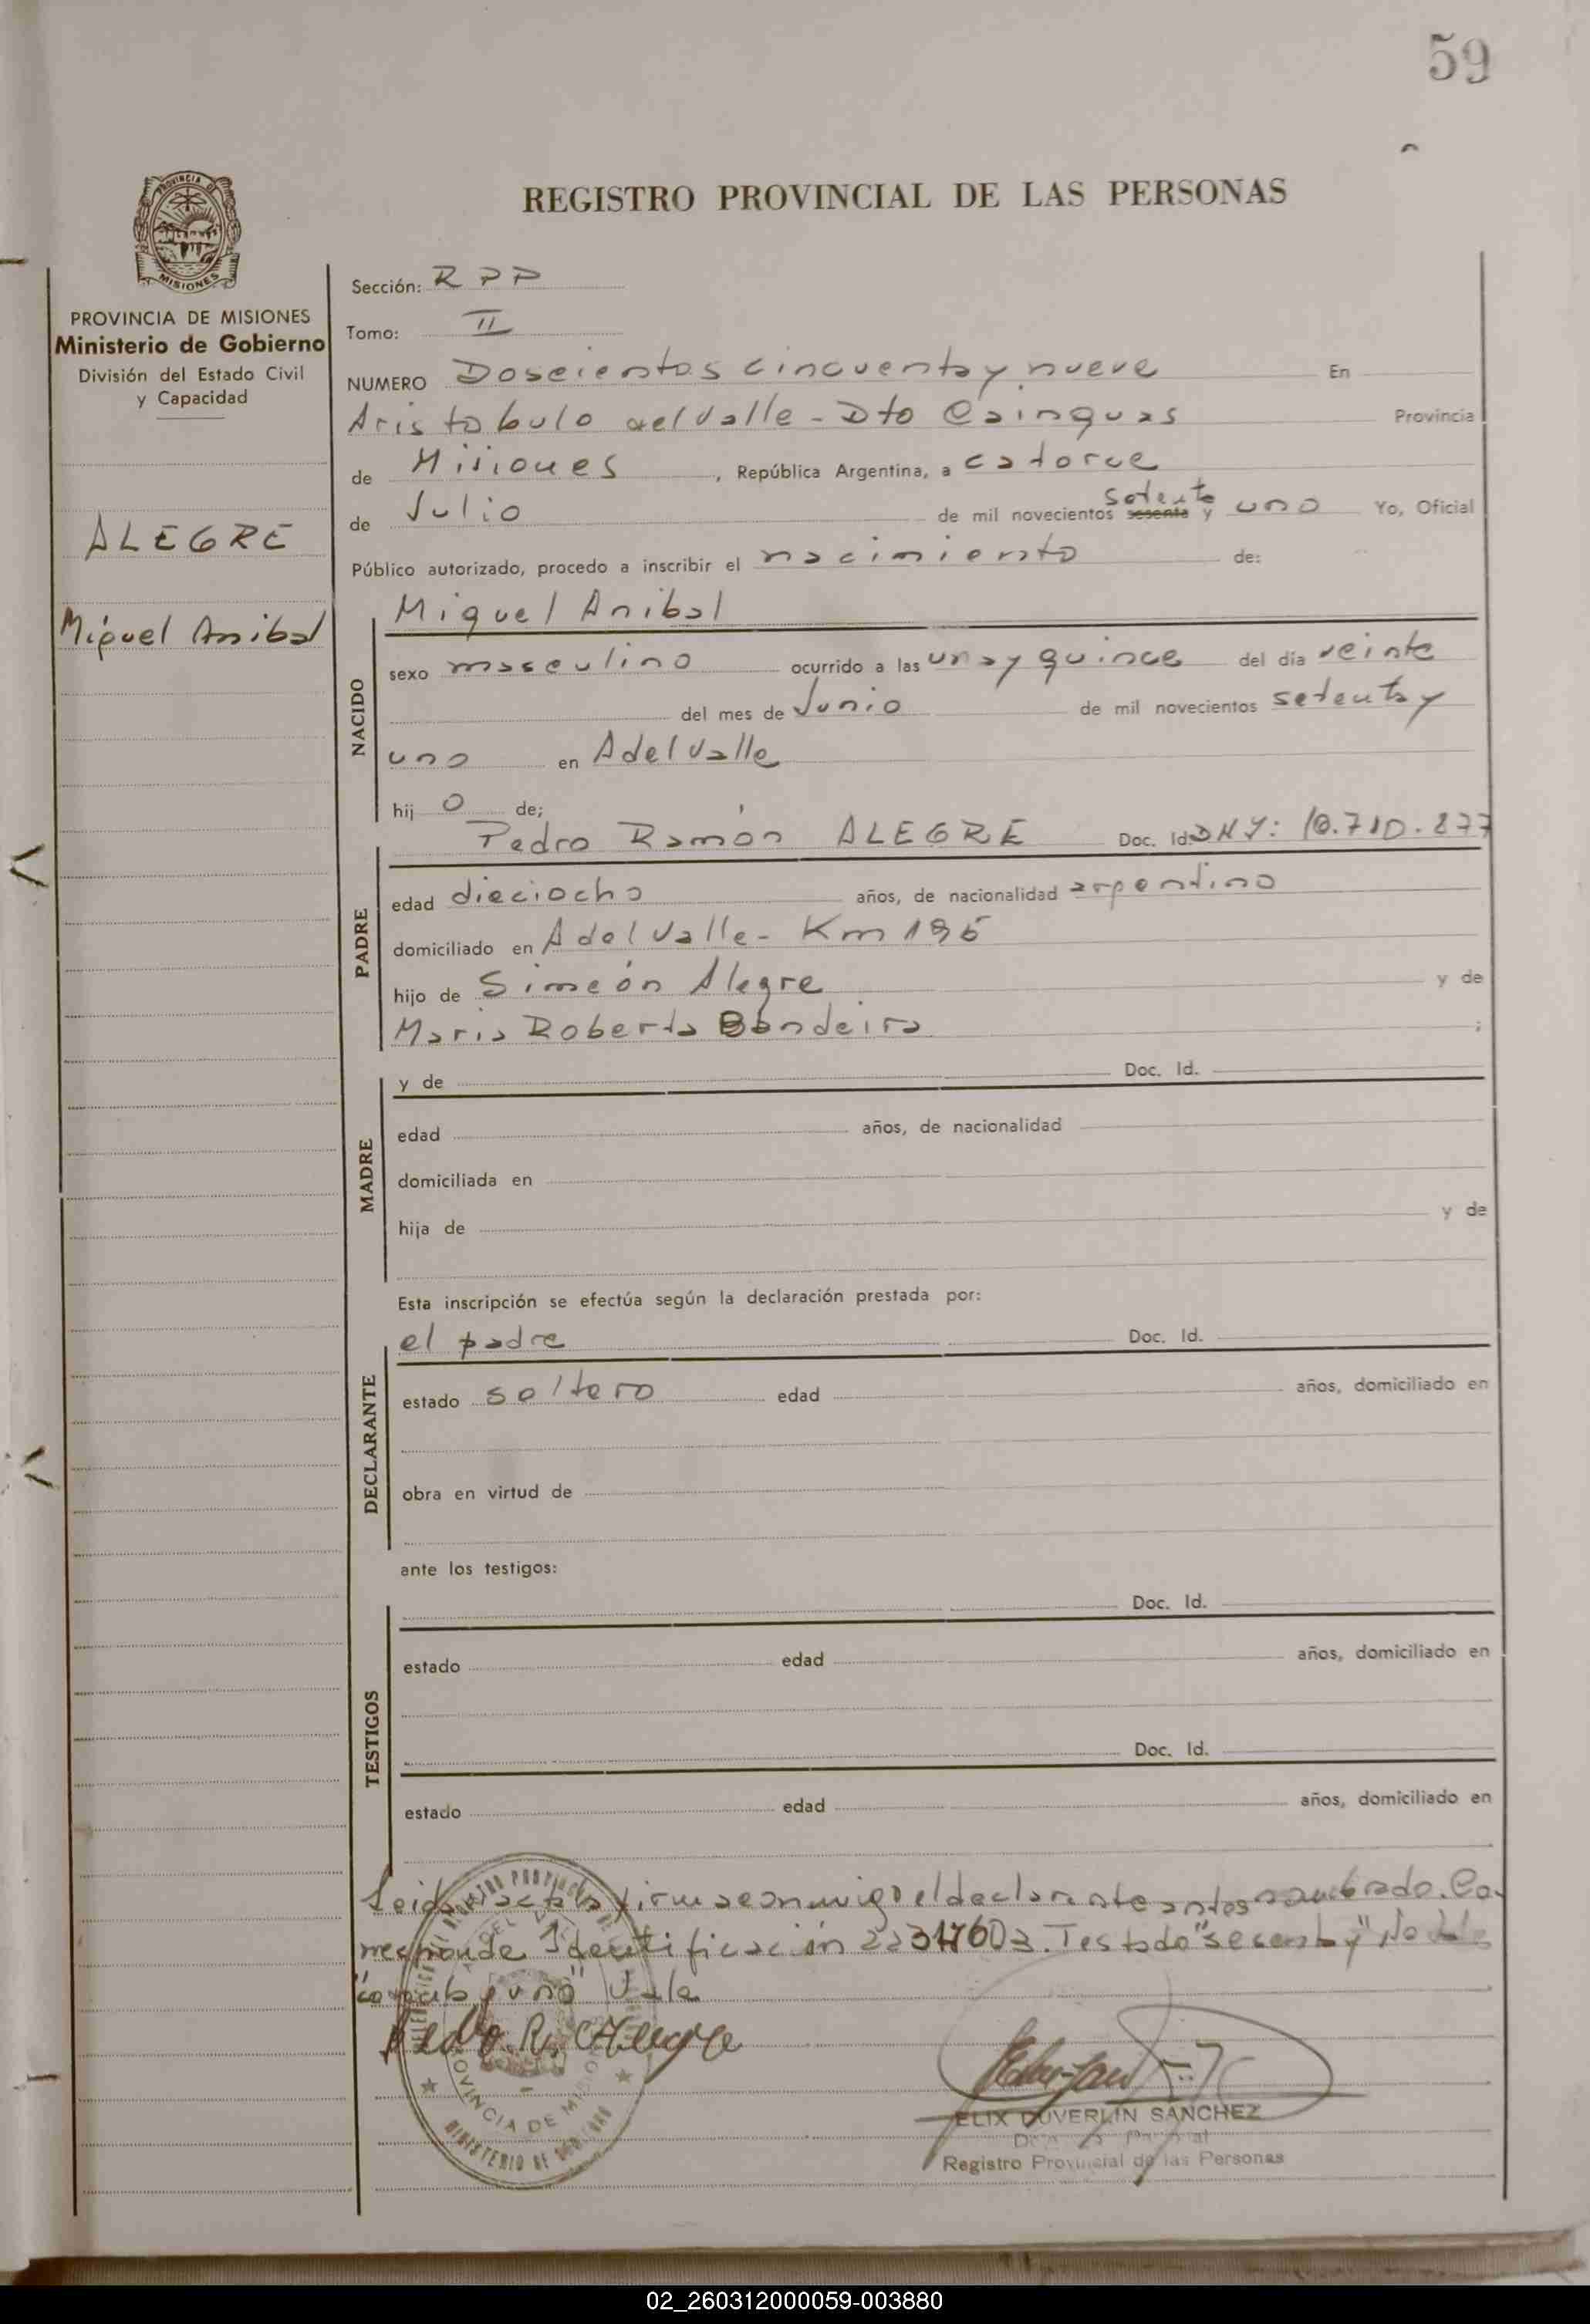 59
PROVINCIA DE
MISIONES
REGISTRO PROVINCIAL DE LAS PERSONAS
PROVINCIA DE MISIONES
Ministerio de Gobierno
División del Estado Civil
y Capacidad
ALEGRE
Miguel Anibal
Sección: R P P
Tomo: II
NUMERO Doscientos cincuenta y nueve En
Aristobulo del Valle - Dto Cainguas Provincia
de Misiones, República Argentina, a catorce
setenta
de Julio de mil novecientos sesenta y uno Yo, Oficial
Público autorizado, procedo a inscribir el nacimiento de:
NACIDO
Miguel Anibal
sexo masculino ocurrido a las una y quince del día veinte
del mes de Junio de mil novecientos setenta y
uno en A del Valle
hij o de;
PADRE
Pedro Ramón ALEGRE Doc. Id. DNY: 10.710.877
edad dieciocho años, de nacionalidad argentino
domiciliado en A del Valle - Km 195
hijo de Simeón Alegre y de
Maria Roberta Bandeira ;
MADRE
y de Doc. Id.
edad años, de nacionalidad
domiciliada en
hija de y de
Esta inscripción se efectúa según la declaración prestada por:
DECLARANTE
el padre Doc. Id.
estado soltero edad años, domiciliado en
obra en virtud de
ante los testigos:
TESTIGOS
Doc. Id.
estado edad años, domiciliado en
Doc. Id.
estado edad años, domiciliado en
Leida el acta firma conmigo el declarante antes nombrado. Co-
rresponde Identificación Testado "sesenta y" No Vale
y uno" Vale
Pedro R. Alegre
PROVINCIA DE MISIONES
MINISTERIO DE GOBIERNO
ELIX DUVERLIN SANCHEZ
Registro Provincial de las Personas
02_260312000059-003880